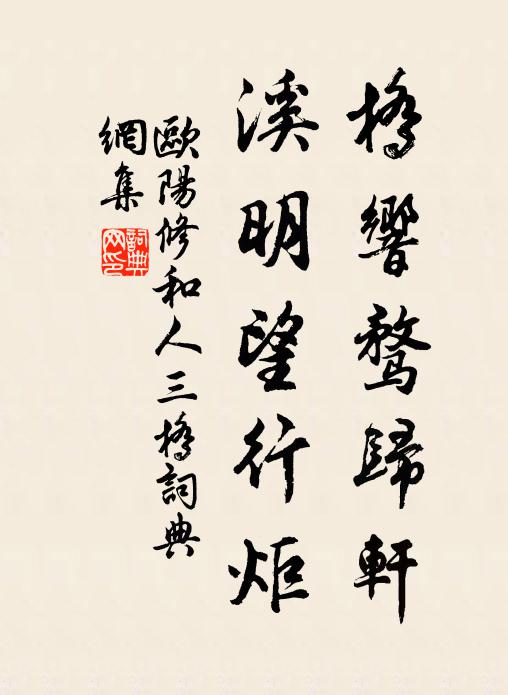 橋響騖歸軒
溪明望行炬
歐陽修和人三橋詞典
網集
詞典
网印